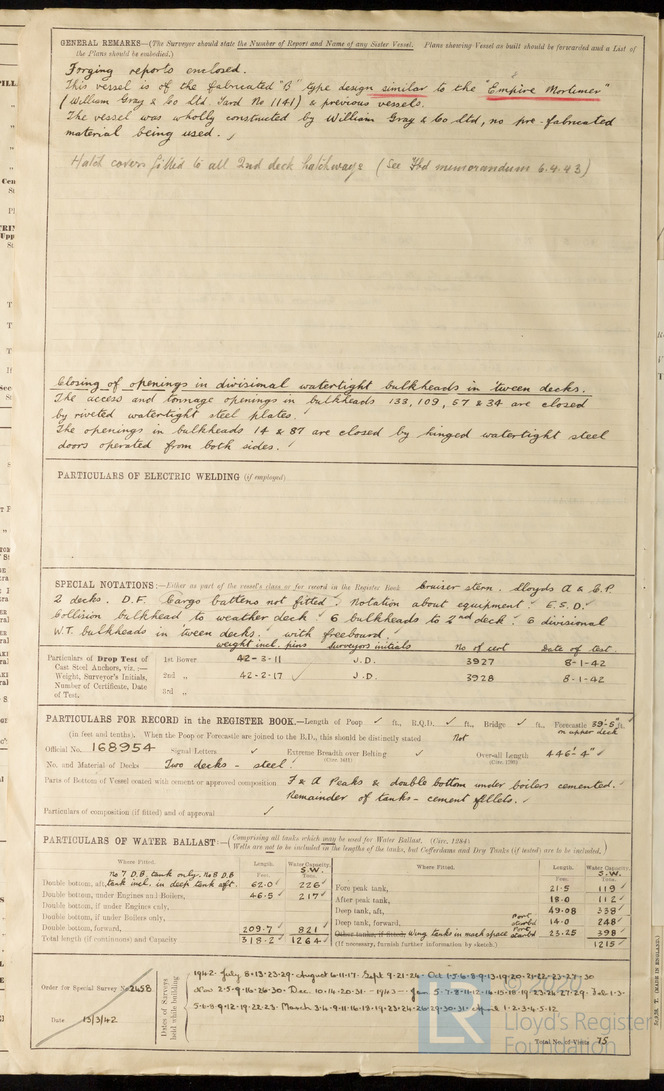 GENERAL REMARKS—(The Surveyor should state the Number of Report and Name of any Sister Vessel. Plans showing Vessel as built should be forwarded and a List of
the Plans should be embodied.)
Forging reports enclosed.
This vessel is of the fabricated "B" type design similar to the "Empire Mortimer"
(William Gray & Co Ltd. Yard No 1141) & previous vessels.
The vessel was wholly constructed by William Gray & Co Ltd, no pre-fabricated
material being used.
Hatch covers fitted to all 2nd deck hatchways (See memorandum 6.4.43)
Closing of openings in divisional watertight bulkheads in 'tween decks.
The access and tonnage openings in bulkheads 133, 109, 57 & 34 are closed
by riveted watertight steel plates.
The openings in bulkheads 14 & 87 are closed by hinged watertight steel
doors operated from both sides.
PARTICULARS OF ELECTRIC WELDING (if employed)
SPECIAL NOTATIONS:—Either as part of the vessel's class or for record in the Register Book. Cruiser stern. Lloyds A & C.P.
2 decks. D.F. Cargo battens not fitted. Notation about equipment. E.S.D.
Collision bulkhead to weather deck 6 bulkheads to 2nd deck 6 divisional
W.T. bulkheads in tween decks. with freeboard
weight incl. pins Surveyors initials No of cert Date of test.
Particulars of Drop Test of 1st Bower 42-3-11 J.D. 3927 8-1-42
Cast Steel Anchors, viz.:—
Weight, Surveyor's Initials, 2nd „ 42-2-17 J.D. 3928 8-1-42
Number of Certificate, Date
of Test. 3rd „
PARTICULARS FOR RECORD in the REGISTER BOOK.—Length of Poop ft., R.Q.D. ft., Bridge ft., Forecastle 39'-5" ft.
on upper deck
(in feet and tenths). When the Poop or Forecastle are joined to the B.D., this should be distinctly stated Not
Official No. 168954 Signal Letters Extreme Breadth over Belting Over-all Length 446'-4"
No. and Material of Decks Two decks - steel
Parts of Bottom of Vessel coated with cement or approved composition F & A Peaks & double bottom under boilers cemented.
Remainder of tanks - cement fillets.
Particulars of composition (if fitted) and of approval
PARTICULARS OF WATER BALLAST:—(Comprising all tanks which may be used for Water Ballast. (Circ. 1284)
Wells are not to be included in the lengths of the tanks, but Cofferdams and Dry Tanks (if tested) are to be included.)
Where Fitted. Length. Water Capacity. Where Fitted. Length. Water Capacity.
Feet. S.W. Tons. Feet. S.W. Tons.
No 7 D.B. tank only. No 8 D.B
Double bottom, aft, tank incl. in deep tank aft. 62.0 226 Fore peak tank, 21.5 119
Double bottom, under Engines and Boilers, 46.5 217 After peak tank, 18.0 112
Double bottom, if under Engines only, Deep tank, aft, 49.08 338
Double bottom, if under Boilers only, Deep tank, forward, Port Starbd 14.0 248
Double bottom, forward, 209.7 821 Other tanks, if fitted, Wing tanks in mach space Port Starbd 23.25 398
Total length (if continuous) and Capacity 318.2 1264 (If necessary, furnish further information by sketch.) 1215
Order for Special Survey No. 2458
Date 13/3/42
Dates of Surveys held while building
1942 July 8·13·23·29· August 6·11·17· Sept 9·21·24· Oct 1·5·6·8·9·13·19·20·21·22·23·27·30
Nov 2·5·9·16·26·30 Dec. 10·14·20·31 - 1943 - Jan 5·7·8·11·12·14·15·18·19·23·24·27·29· Feb 1·3·
5·6·8·9·12·19·22·23· March 3·4·9·11·16·18·19·23·24·26·29·30·31· April 1·2·3·4·5·12
Total No. of Visits 75
© 2020
LR
Lloyd's Register
Foundation